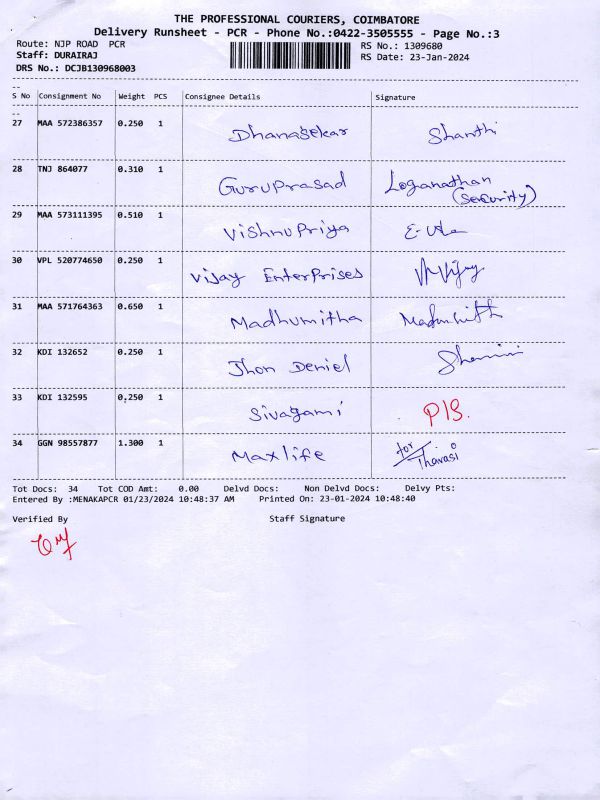 THE PROFESSIONAL COURIERS, COIMBATORE
Delivery Runsheet - PCR - Phone No.:0422-3505555 - Page No.:3
Route: NJP ROAD PCR RS No.: 1309680
Staff: DURAIRAJ RS Date: 23-Jan-2024
DRS No.: DCJB130968003
S No Consignment No Weight PCS Consignee Details Signature
27 MAA 572386357 0.250 1 Dhanasekar Shanthi
28 TNJ 864077 0.310 1 GuruPrasad Loganathan
(Security)
29 MAA 573111395 0.510 1 VishnuPriya
30 VPL 520774650 0.250 1 Vijay EnterPrises Vijay
31 MAA 571764363 0.650 1 Madhumitha
32 KDI 132652 0.250 1 Jhon Deniel
33 KDI 132595 0.250 1 Sivagami P/S.
34 GGN 98557877 1.300 1 Maxlife for
Thavasi
Tot Docs: 34 Tot COD Amt: 0.00 Delvd Docs: Non Delvd Docs: Delvy Pts:
Entered By :MENAKAPCR 01/23/2024 10:48:37 AM Printed On: 23-01-2024 10:48:40
Verified By Staff Signature